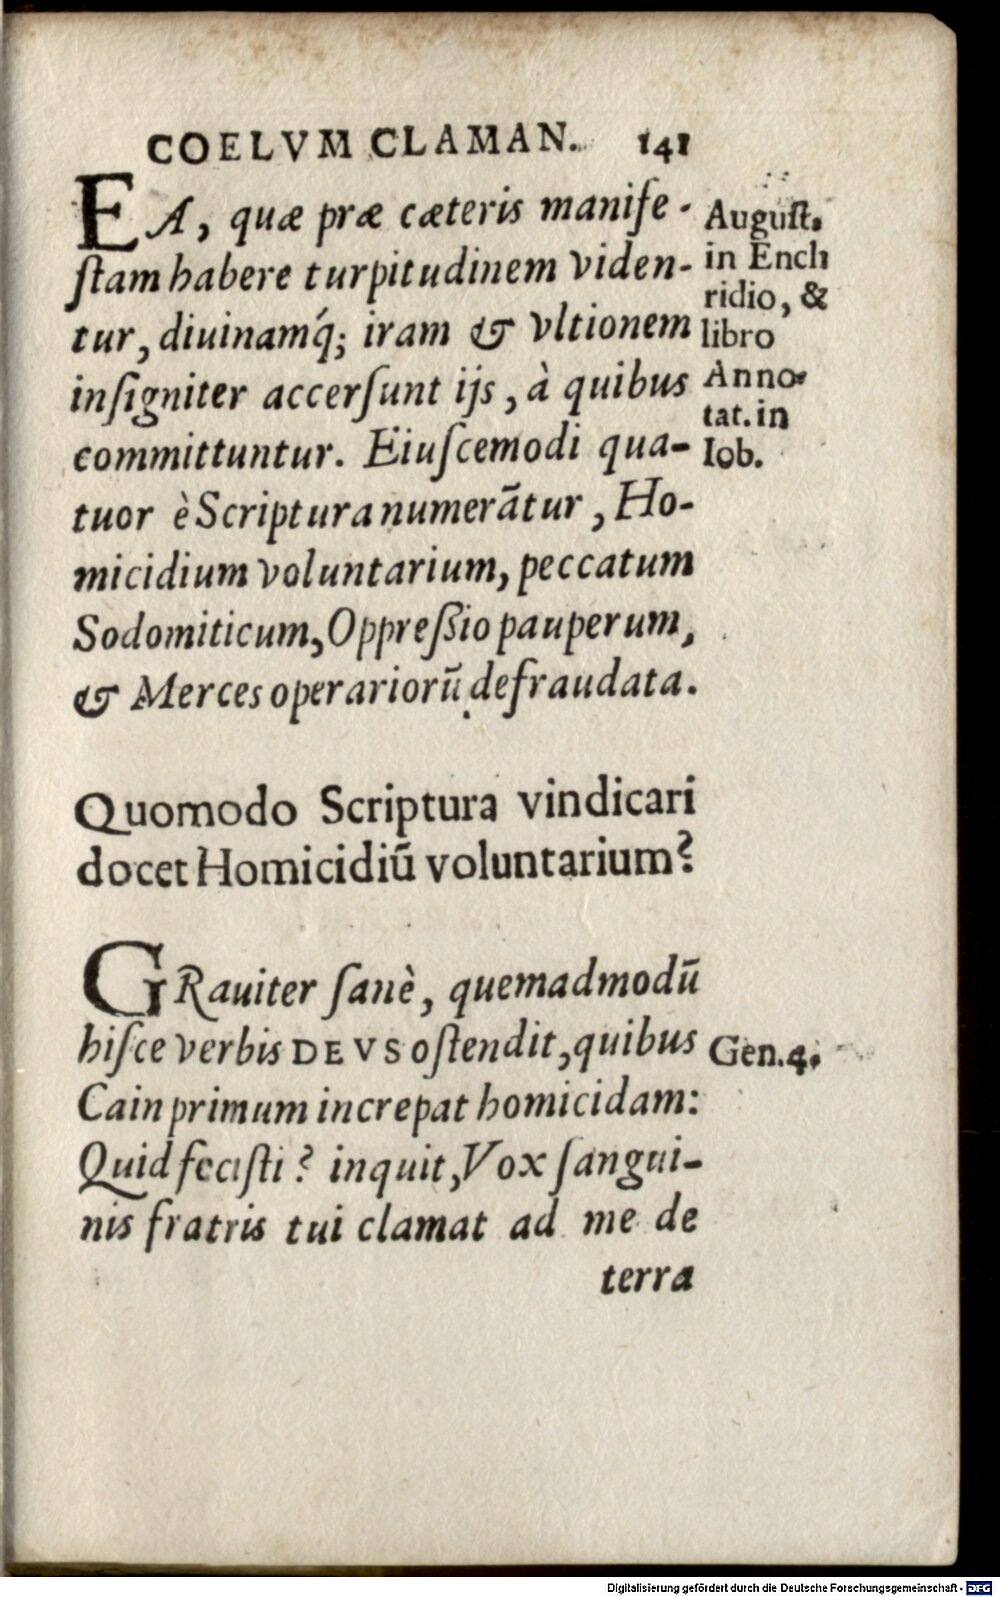 COELVM CLAMAN. 141
EA, quæ præ cæteris manife-
ſtam habere turpitudinem viden-
tur, diuinamq́; iram & vltionem
inſigniter accerſunt ijs, à quibus
committuntur. Eiuſcemodi qua-
tuor è Scriptura numerãtur, Ho-
micidium voluntarium, peccatum
Sodomiticum, Oppreßio pauperum,
& Merces operariorũ defraudata.
Auguſt.
in Enchi
ridio, &
libro
Anno-
tat. in
Iob.
Quomodo Scriptura vindicari
docet Homicidiũ voluntarium?
GRauiter ſanè, quemadmodũ
hiſce verbis DEVS oſtendit, quibus
Cain primum increpat homicidam:
Quid feciſti? inquit, Vox ſangui-
nis fratris tui clamat ad me de
terra
Gen. 4.
Digitalisierung gefördert durch die Deutsche Forschungsgemeinschaft - DFG